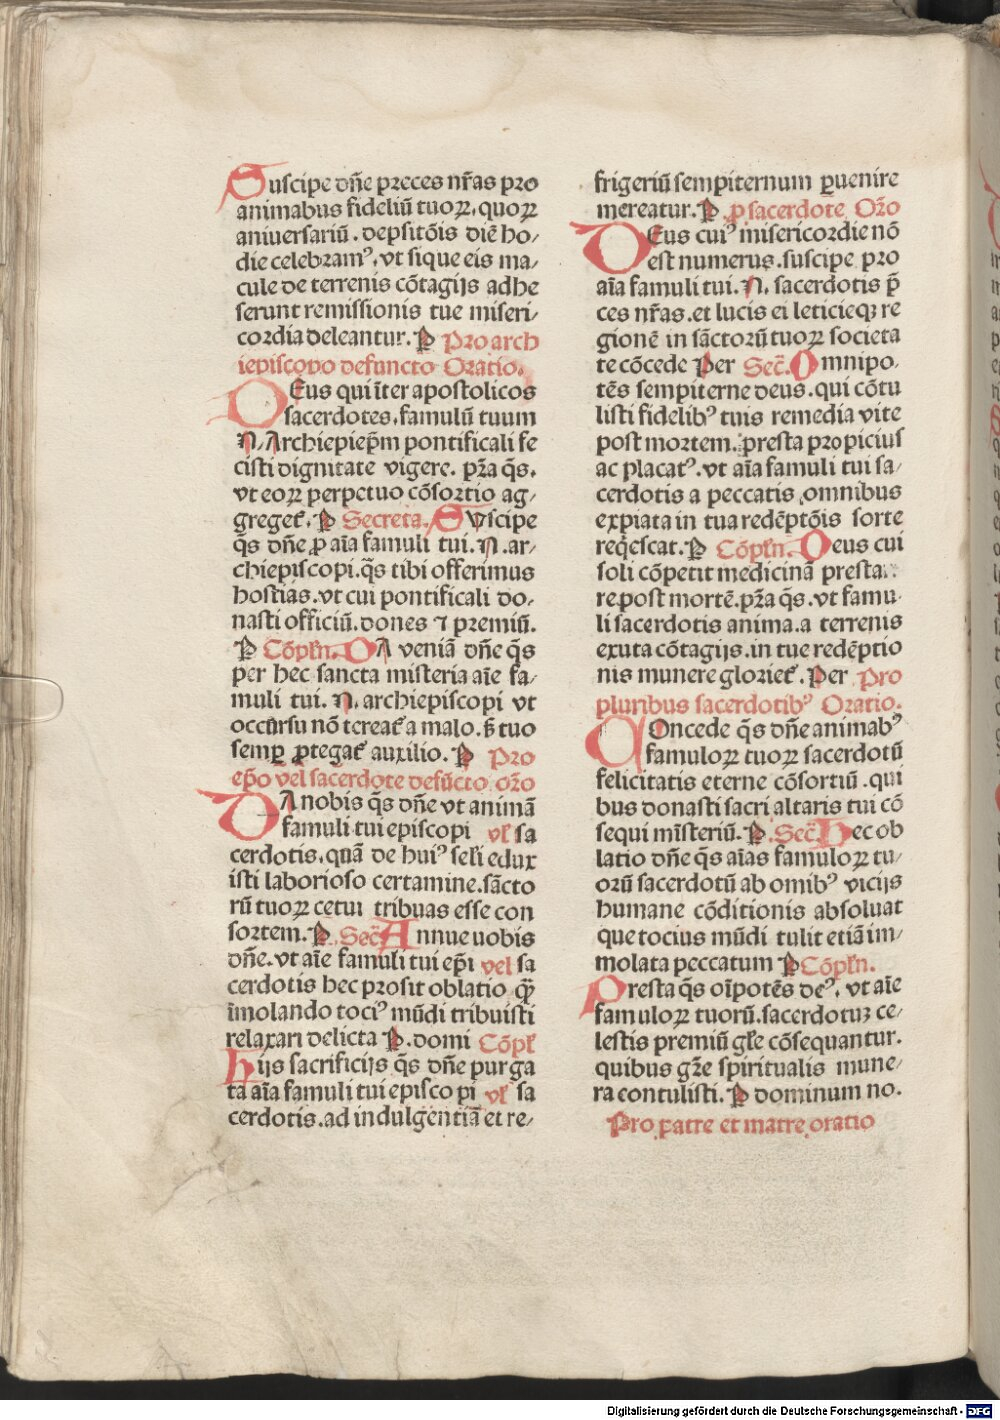 Suscipe dn̄e preces nr̄as pro
animabus fideliū tuoꝝ. quoꝝ
aniuersariū. depsitōis diē ho/
die celebramꝰ. vt siqꝫ eis ma/
cule de terrenis cōtagijs adhe
serunt remissionis tue miseri/
cordia deleantur. P Pro arch
iepiscopo defuncto Oratio.
DEus qui īter apostolicos
sacerdotes. famulū tuum
.N. Archiepiep̄m pontificali fe
cisti dignitate vigere. pr̄a q̄s.
vt eoꝝ perpetuo cōsortio ag/
greget᷑. P Secreta. Suscipe
q̄s dn̄e ꝓ aīa famuli tui. .N. ar/
chiepiscopi. q̄s tibi offerimus
hostias. vt cui pontificali do/
nasti officiū. dones ⁊ premiū.
P Cōpl̄n. DA veniā dn̄e q̄s
per hec sancta misteria aīe fa/
muli tui. .N. archiepiscopi vt
occursu nō tereat᷑ a malo. s̄ tuo
semꝑ ꝓtegat᷑ auxilio. P Pro
ep̄o vel sacerdote defūcto or̄o
DA nobis q̄s dn̄e vt animā
famuli tui episcopi vl̄ sa
cerdotis. quā de huiꝰ secl̄i edux
isti laborioso certamine. sācto
rū tuoꝝ cetui tribuas esse con
sortem. P. Sec̄. Annue uobis
dn̄e. vt aīe famuli tui ep̄i vel sa
cerdotis hec prosit oblatio q̄ꝫ
īmolando tociꝰ mūdi tribuisti
relaxari delicta P. domi Cōpl̄
Hijs sacrificijs q̄s dn̄e purga
ta aīa famuli tui episcopi vl̄ sa
cerdotis. ad indulgentiā et re/
frigeriū sempiternum ꝑuenire
mereatur. P. ꝓ sacerdote Or̄o
DEus cuiꝰ misericordie nō
est numerus. suscipe pro
aīa famuli tui. .N. sacerdotis p̄
ces nr̄as. et lucis ei leticieqꝫ re
gionē in sāctorū tuoꝝ societa
te cōcede Per Sec̄. Omnipo/
tēs sempiterne deus. qui cōtu
listi fidelibꝰ tuis remedia vite
post mortem. presta propicius
ac placatꝰ. vt aīa famuli tui sa/
cerdotis a peccatis omnibus
expiata in tua redēptōis sorte
req̄escat. P Cōpl̄n. Deus cui
soli cōpetit medicinā presta
re post mortē. pr̄a q̄s. vt famu
li sacerdotis anima. a terrenis
exuta cōtagijs. in tue redēptio
nis munere gloriet᷑. Per Pro
pluribus sacerdotibꝰ Oratio.
COncede q̄s dn̄e animabꝰ
famuloꝝ tuoꝝ sacerdotū
felicitatis eterne cōsortiū. qui
bus donasti sacri altaris tui cō
sequi mīsteriū. P. Sec̄. Hec ob
latio dn̄e q̄s aīas famuloꝝ tu/
orū sacerdotū ab omībꝰ vicijs
humane cōditionis absoluat
que tocius mūdi tulit etiā im/
molata peccatum P Cōpl̄n.
Presta q̄s oīpotēs deꝰ. vt aīe
famuloꝝ tuorū. sacerdotuꝫ ce/
lestis premiū gl̄e cōsequantur.
quibus gr̄e spiritualis mune/
ra contulisti. P dominum no.
Pro patre et matre oratio
Digitalisierung gefördert durch die Deutsche Forschungsgemeinschaft - DFG